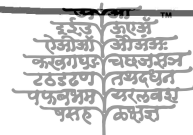 अआ TM
इईउ ऊएॲ
ऐओऑ औअंअः
कखगघङ चछजझञ
टठडढण तथदधन
पफबभम यरलवश
षसह ळक्षज्ञ